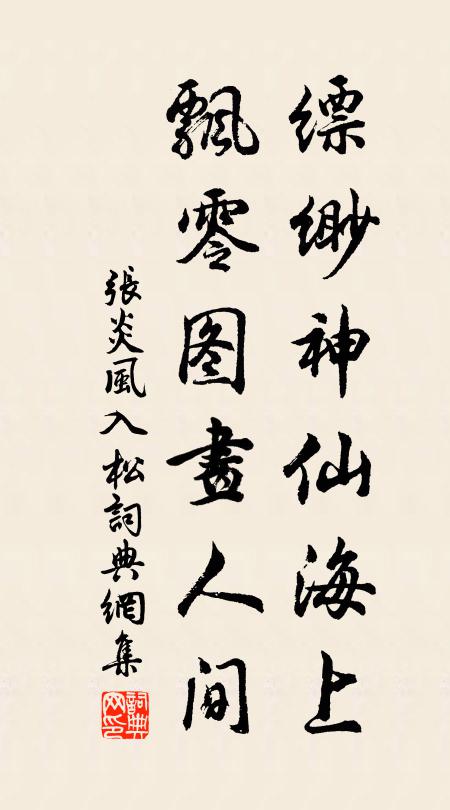 缥缈神仙海上
飄零图畫人间
張炎風入松詞典網集
詞典网印